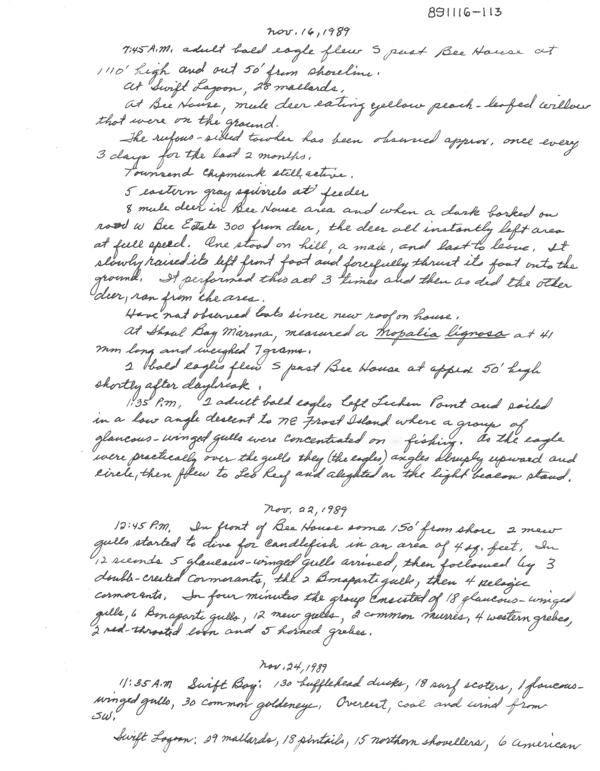 891116-113
Nov. 16, 1989
7:45 A.M. adult bald eagle flew S past Bee House at
110' high and out 50' from shoreline.
At Swift Lagoon, 28 mallards.
At Bee House, mule deer eating yellow peach-leafed willow
that were on the ground.
The rufous-sided towhee has been observed approx. once every
3 days for the last 2 months.
Townsend Chipmunk still active.
5 eastern gray squirrels at feeder
8 mule deer in Bee House area and when a dark barked on
road W Bee Estate 300 from deer, the deer all instantly left area
at full speed. One stood on hill, a male, and last to leave. It
slowly raised its left front foot and forcefully thrust its foot onto the
ground. It performed this act 3 times and then as did the other
deer, ran from the area.
Have not observed bats since new roof on house.
At Shoal Bay Marina, measured a Mopalia lignosa at 41
mm long and weighed 7 grams.
2 bald eagles flew S past Bee House at approx 50' high
shortly after daybreak.
1:35 P.M. 2 adult bald eagles left Lichen Point and sailed
in a low angle descent to NE Frost Island where a group of
glaucous-winged gulls were concentrated on fishing. As the eagle
were practically over the gulls they (the eagles) angles abruply upward and
circle, then flew to Leo Reef and alighted on the light beacon stand.
Nov. 22, 1989
12:45 P.M. In front of Bee House some 150' from shore 2 mew
gulls started to dive for candlefish in an area of 4 sq. feet. In
12 seconds 5 glaucous-winged gulls arrived, then followed by 3
double-crested cormorants, the 2 Bonaparte gulls, then 4 pelagic
cormorants. In four minutes the group consisted of 18 glaucous-winged
gulls, 6 Bonaparte gulls, 12 mew gulls, 2 common murres, 4 western grebes,
2 red-throated loon and 5 horned grebes.
Nov. 24, 1989
11:35 A.M Swift Bay: 130 bufflehead ducks, 18 surf scoters, 1 glaucous-
winged gulls, 30 common goldeneye. Overcast, cool and wind from
SW.
Swift Lagoon: 29 mallards, 18 pintails, 15 northern shovellers, 6 American